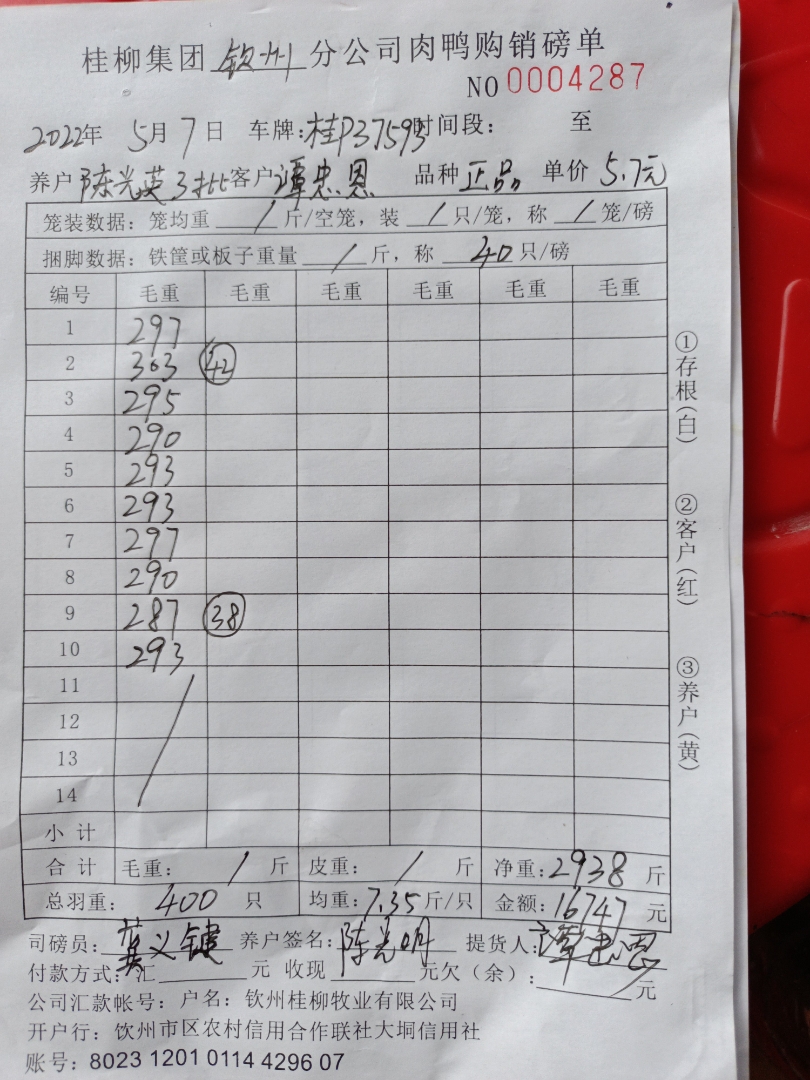 桂柳集团 钦州 分公司肉鸭购销磅单
NO 0004287
2022年 5月7日 车牌:桂P37593 时间段: 至
养户 陈光英3批 客户 谭忠恩 品种 正品 单价 5.7元
笼装数据: 笼均重 / 斤/空笼, 装 / 只/笼, 称 / 笼/磅
捆脚数据: 铁筐或板子重量 / 斤, 称 40 只/磅
编号 毛重 毛重 毛重 毛重 毛重 毛重
1 297
2 303 42
3 295
4 290
5 293
6 293
7 297
8 290
9 287 38
10 293
11
12
13
14
小计
合计 毛重: / 斤 皮重: / 斤 净重: 2938 斤
总羽重: 400 只 均重: 7.35 斤/只 金额: 16747 元
司磅员: 龚义键 养户签名: 陈光明 提货人: 谭忠恩
付款方式: 汇 元 收现 元欠(余): 元
公司汇款帐号: 户名: 钦州桂柳牧业有限公司
开户行: 钦州市区农村信用合作联社大垌信用社
账号: 8023 1201 0114 4296 07
①存根(白)
②客户(红)
③养户(黄)